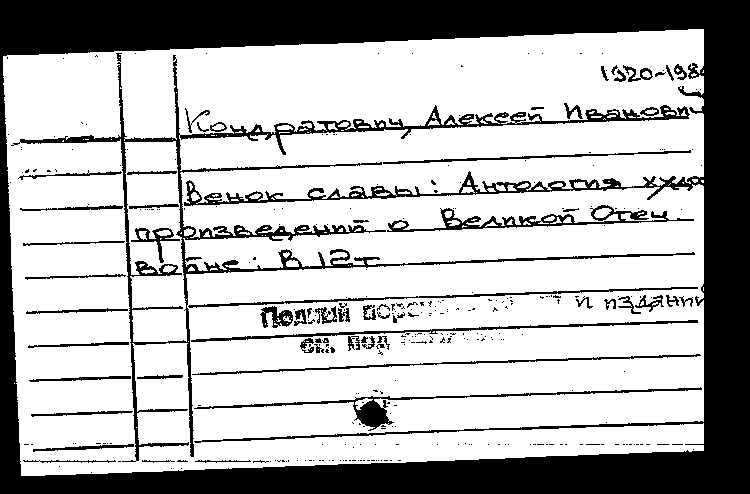 1920-198
Кондратович, Алексей Иванович
Венок славы: Антология худо
произведений о Великой Отеч.
войне: В 12т
Полный и издани
см. под